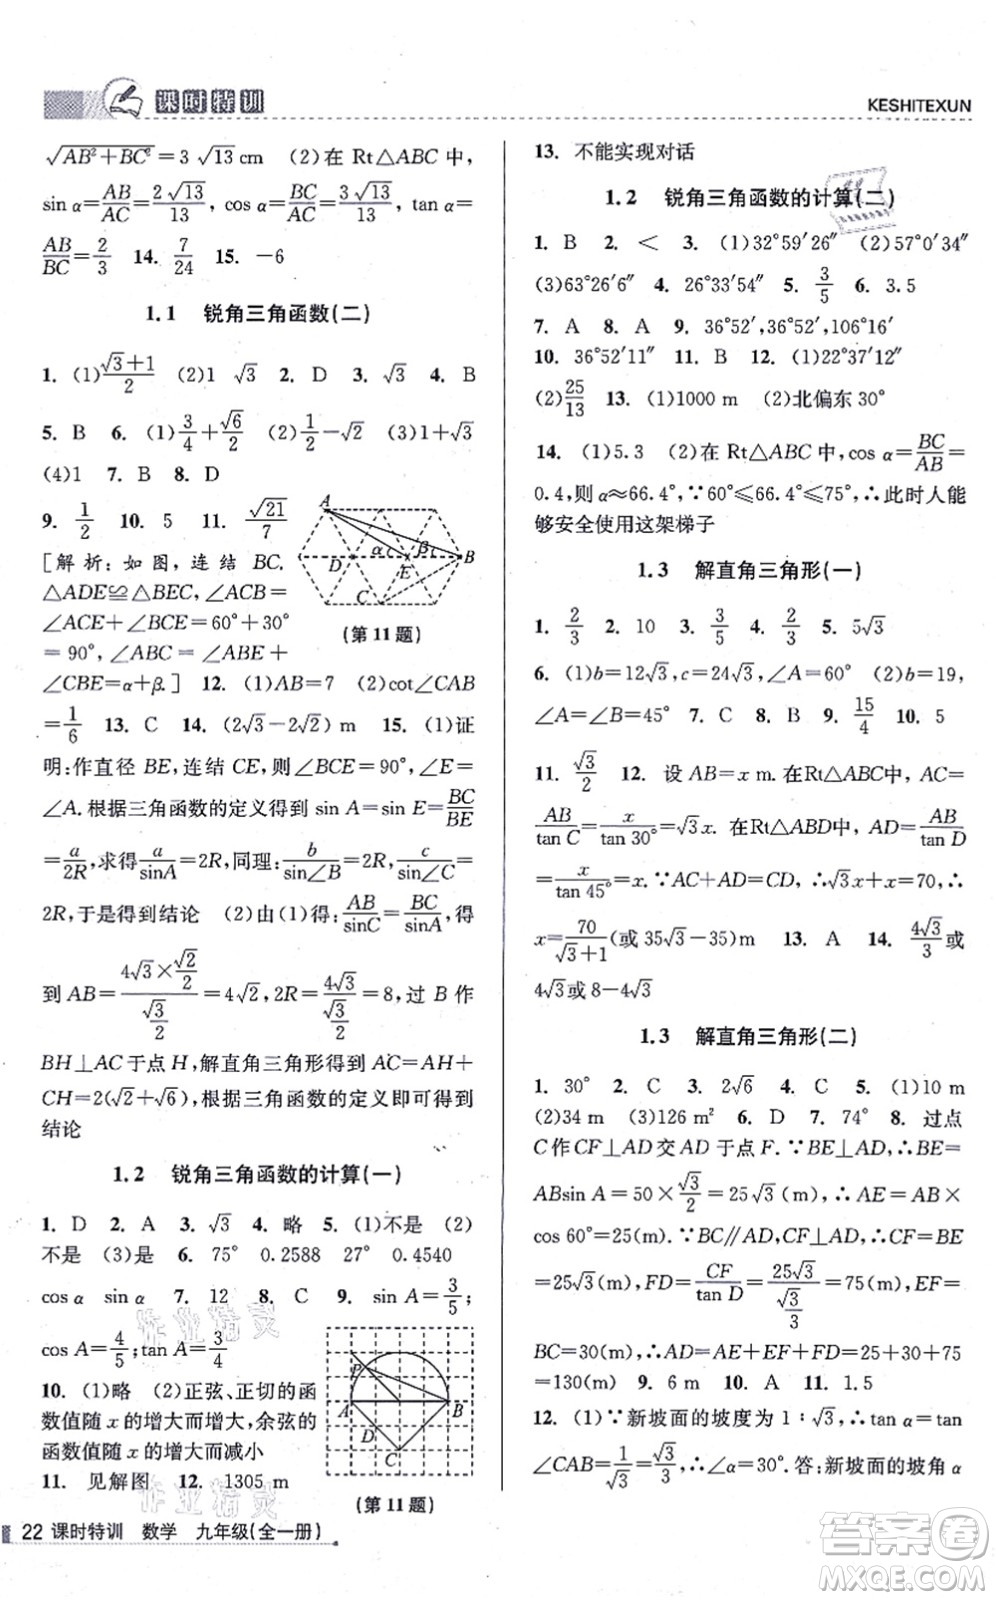 课时特训
KESHITEXUN
√(AB²+BC²)=3√13 cm (2)在 Rt△ABC 中,
sin α=AB/AC=2√13/13, cos α=BC/AC=3√13/13, tan α
=AB/BC=2/3 14. 7/24 15. −6
1.1 锐角三角函数(二)
1. (1)(√3+1)/2 (2)1 √3 2. D 3. √3 4. B
5. B 6. (1)3/4+√6/2 (2)1/2−√2 (3)1+√3
(4)1 7. B 8. D
9. 1/2 10. 5 11. √21/7
[解析:如图,连结 BC.
△ADE≌△BEC, ∠ACB
=∠ACE+∠BCE=60°+30°
=90°, ∠ABC=∠ABE+
∠CBE=α+β.] 12. (1)AB=7 (2)cot∠CAB
A
D
α
E
β
B
C
(第 11 题)
=1/6 13. C 14. (2√3−2√2) m 15. (1)证
明:作直径 BE,连结 CE,则∠BCE=90°,∠E=
∠A. 根据三角函数的定义得到 sin A=sin E=BC/BE
=a/2R,求得a/sinA=2R,同理:b/sin∠B=2R,c/sin∠C=
2R,于是得到结论 (2)由(1)得:AB/sinC=BC/sinA,得
到 AB=(4√3×√2/2)/(√3/2)=4√2,2R=4√3/(√3/2)=8,过 B 作
BH⊥AC 于点 H,解直角三角形得到 AC=AH+
CH=2(√2+√6),根据三角函数的定义即可得到
结论
1.2 锐角三角函数的计算(一)
1. D 2. A 3. √3 4. 略 5. (1)不是 (2)
不是 (3)是 6. 75° 0.2588 27° 0.4540
cos α sin α 7. 12 8. C 9. sin A=3/5;
cos A=4/5; tan A=3/4
10. (1)略 (2)正弦、正切的函
数值随 x 的增大而增大,余弦的
函数值随 x 的增大而减小
11. 见解图 12. 1305 m
P
A
B
D
C
(第 11 题)
22 课时特训 数学 九年级(全一册)
13. 不能实现对话
1.2 锐角三角函数的计算(二)
1. B 2. < 3. (1)32°59′26″ (2)57°0′34″
(3)63°26′6″ 4. 26°33′54″ 5. 3/5 6. 3.5
7. A 8. A 9. 36°52′,36°52′,106°16′
10. 36°52′11″ 11. B 12. (1)22°37′12″
(2)25/13 13. (1)1000 m (2)北偏东 30°
14. (1)5.3 (2)在 Rt△ABC 中,cos α=BC/AB=
0.4,则 α≈66.4°,∵60°⩽66.4°⩽75°,∴此时人能
够安全使用这架梯子
1.3 解直角三角形(一)
1. 2/3 2. 10 3. 3/5 4. 2/3 5. 5√3
6. (1)b=12√3,c=24√3,∠A=60° (2)b=19,
∠A=∠B=45° 7. C 8. B 9. 15/4 10. 5
11. √3/2 12. 设 AB=x m. 在Rt△ABC中, AC=
AB/tan C=x/tan 30°=√3x. 在Rt△ABD中, AD=AB/tan D
=x/tan 45°=x. ∵AC+AD=CD, ∴√3x+x=70, ∴
x=70/(√3+1)(或 35√3−35)m 13. A 14. 4√3/3 或
4√3 或 8−4√3
1.3 解直角三角形(二)
1. 30° 2. C 3. 2√6 4. C 5. (1)10 m
(2)34 m (3)126 m² 6. D 7. 74° 8. 过点
C 作 CF⊥AD 交 AD 于点 F. ∵BE⊥AD,∴BE=
ABsin A=50×√3/2=25√3(m). ∴AE=AB×
cos 60°=25(m). ∵BC∥AD,CF⊥AD,∴CF=BE
=25√3(m),FD=CF/tan D=25√3/(√3/3)=75(m),EF=
BC=30(m). ∴AD=AE+EF+FD=25+30+75
=130(m) 9. 6 m 10. A 11. 1.5
12. (1)∵新坡面的坡度为 1∶√3,∴tan α=tan
∠CAB=1/√3=√3/3,∴∠α=30°. 答:新坡面的坡角 α
作业精灵
作业精灵
答案圈
MXQE.COM